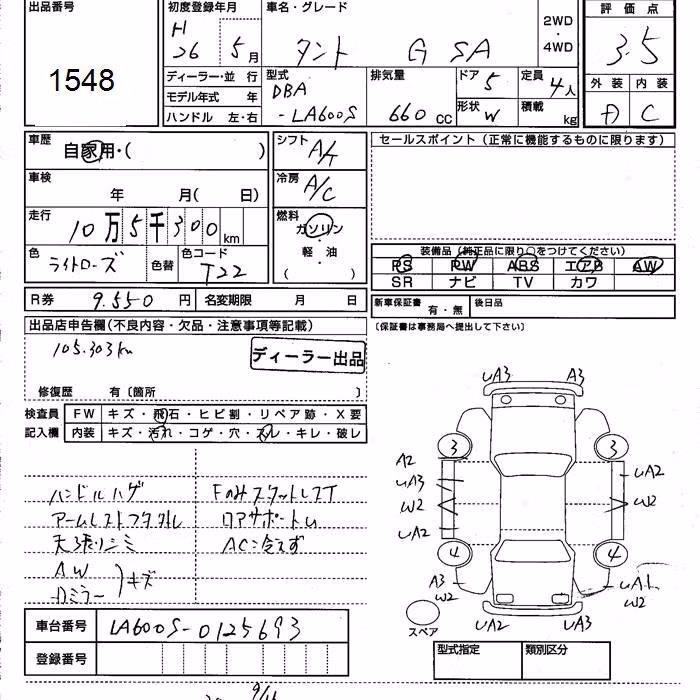 出品番号
1548
初度登録年月
H
26 5月
車名・グレード
タント G SA
2WD
・
4WD
評価点
3.5
外装 内装
D C
ディーラー・並行
モデル年式 年
ハンドル 左・右
型式
DBA
-LA600S
排気量
660 CC
ドア 5
形状 W
定員 4人
積載 kg
車歴
自家用・( )
車検
年 月( 日)
走行
10万5千300 km
色
ライトローズ
色替
色コード
T22
シフト
A/T
冷房
A/C
燃料
ガソリン
・
軽油
( )
セールスポイント (正常に機能するものに限ります)
装備品 (純正品に限り○をつけてください)
PS PW ABS エアB AW
SR ナビ TV カワ
R券 9.550円 名変期限 月 日
新車保証書 有・無 後日品
(保証書は事務局へ提出して下さい)
出品店申告欄(不良内容・欠品・注意事項等記載)
105.303km
ディーラー出品
修復歴 有〔箇所 〕
検査員
記入欄
FW キズ・飛石・ヒビ割・リペア跡・X要
内装 キズ・汚れ・コゲ・穴・スレ・キレ・破レ
ハンドルハゲ
アームレストフタ外レ
天張リシミ
AW
ドアミラー
キズ
Fのみスタットレスて
ロアサポートム
AC冷えず
車台番号 LA600S-0125693
登録番号
UA3 A3
3 3
A2
UA3
W2
UA2
UA2
W2
4 4
A3
W2
UA1
W2
UA2 UA3
スペア
型式指定 類別区分
9/16